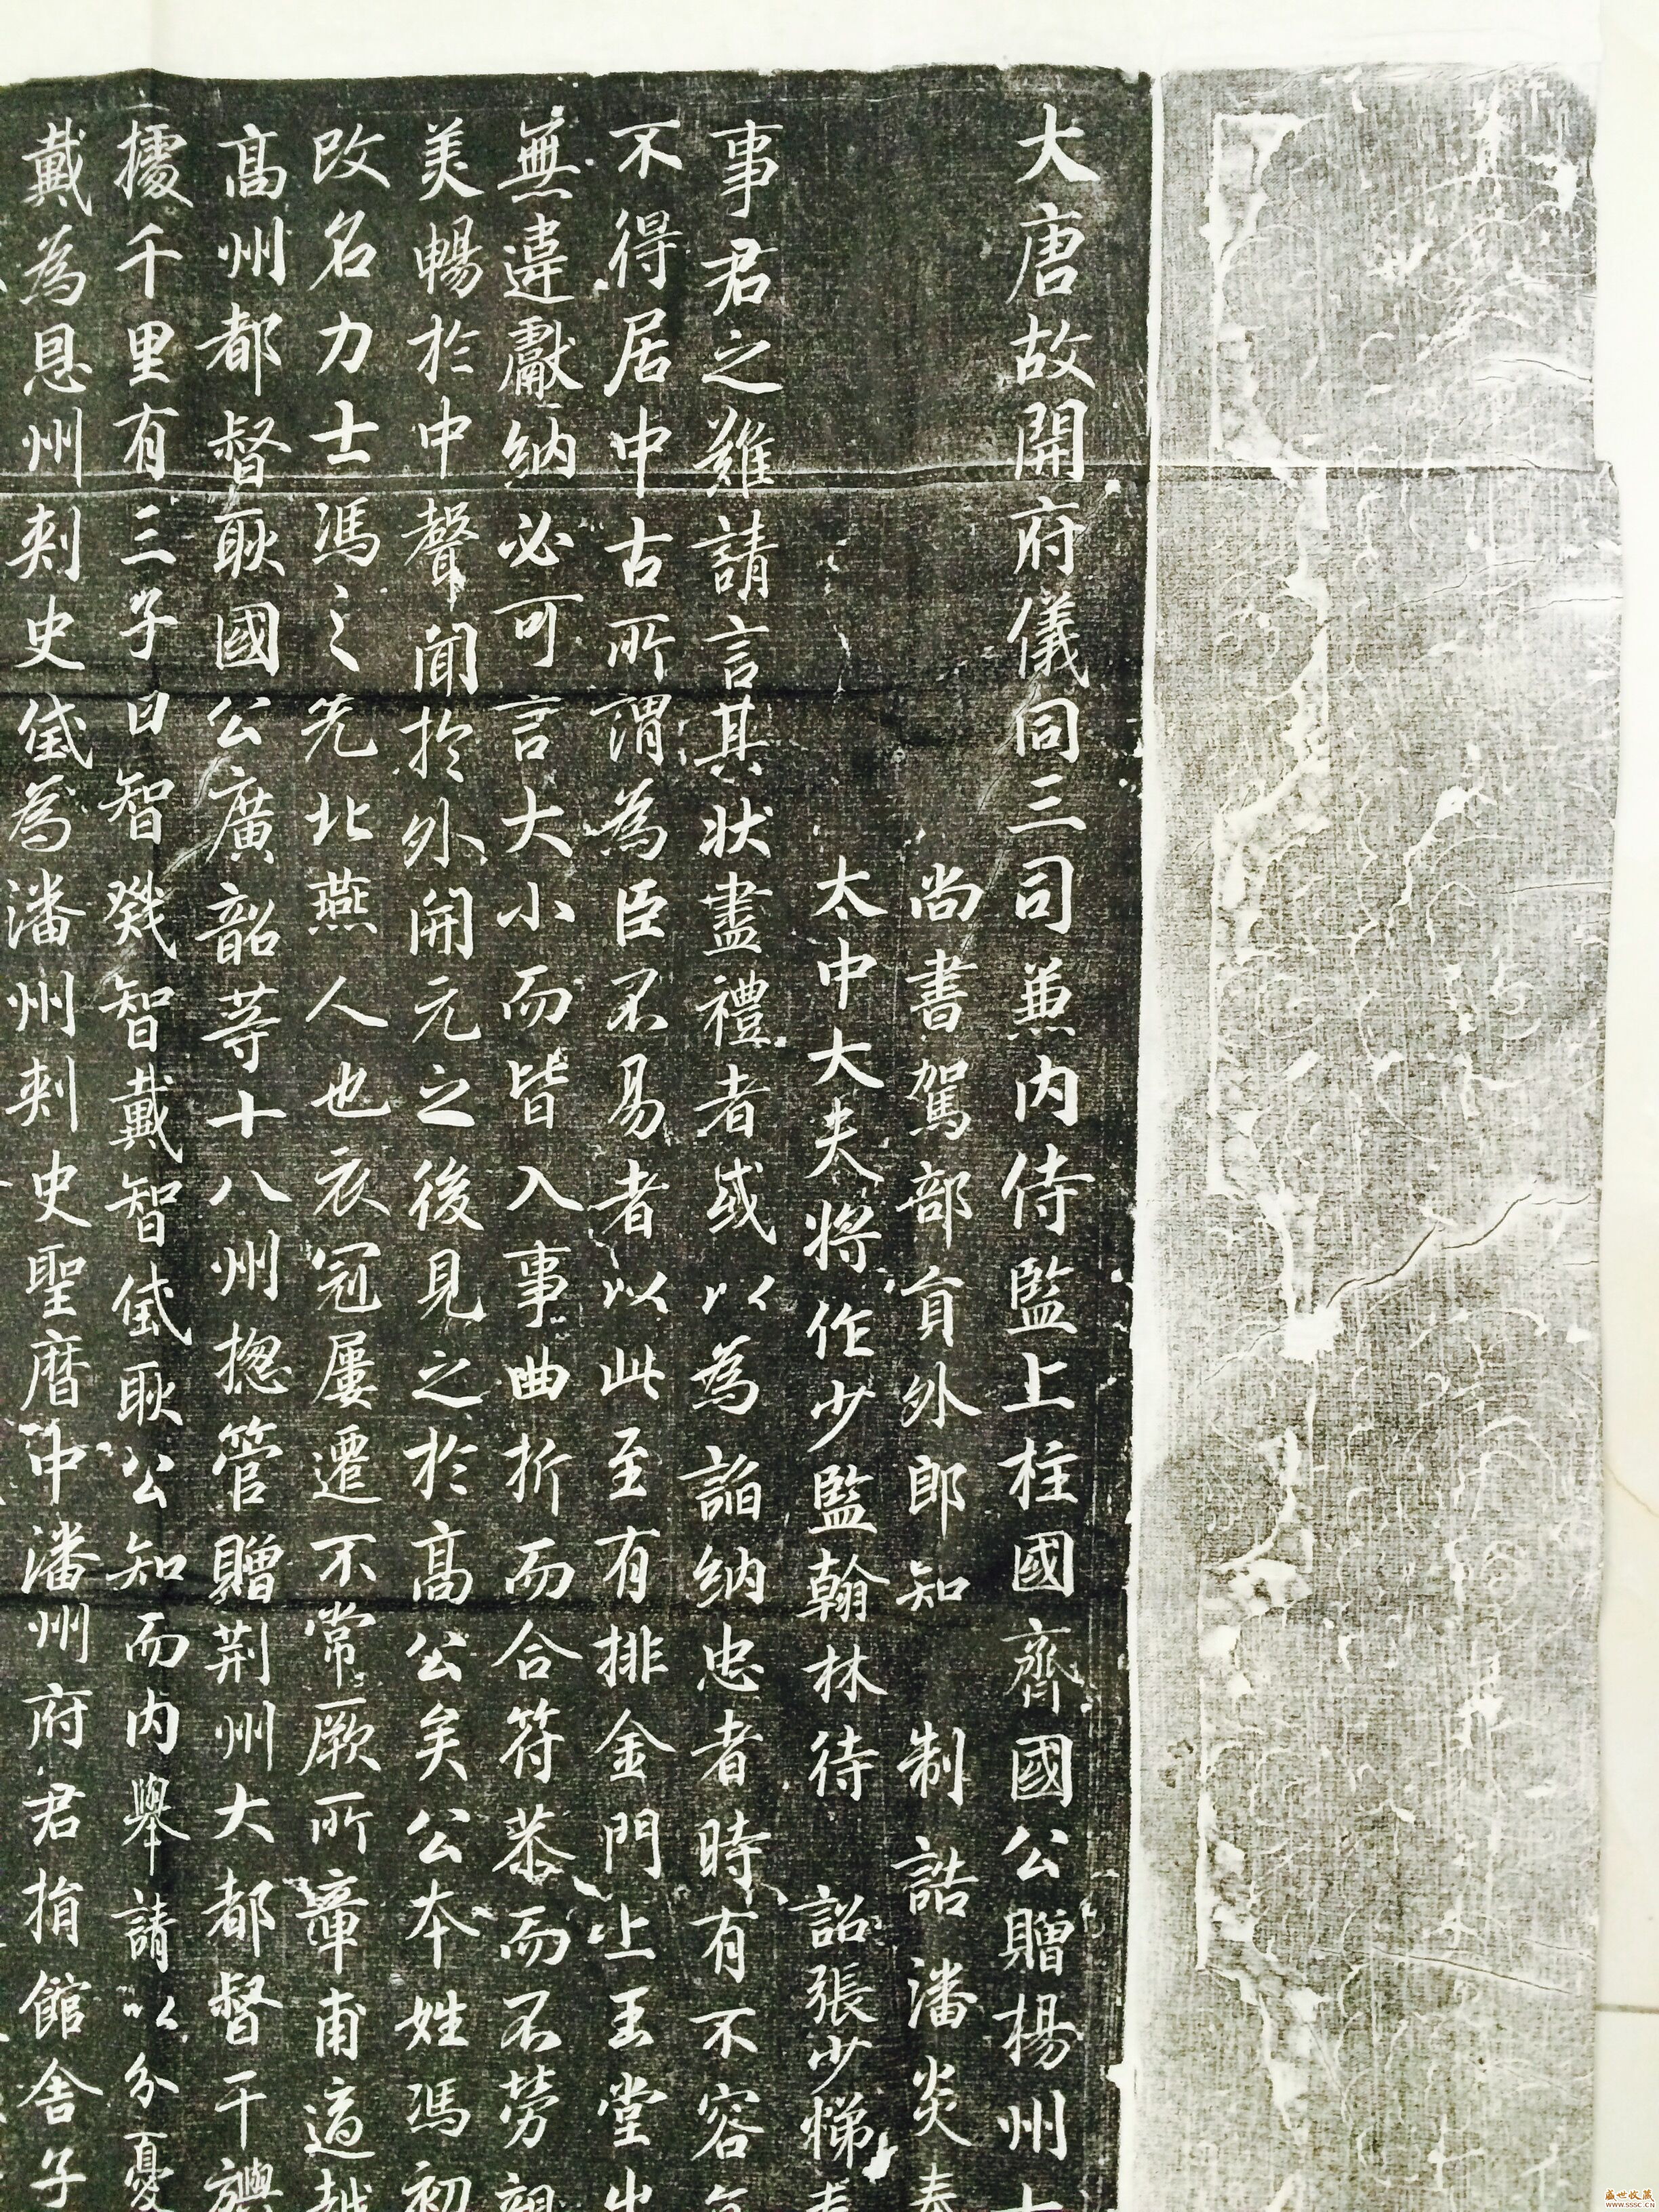 大唐故開府儀同三司兼内侍監上柱國齊國公贈揚州大
尚書駕部員外郎知 制誥潘炎奉
太中大夫將作少監翰林待 詔張少悌奉
事君之難請言其狀盡禮者或以為諂納忠者時有不容
不得居中古所謂為臣不易者以此至有排金門上玉堂出
無違獻納必可言大小而皆入事曲折而合符恭而不勞親
美暢於中聲聞於外開元之後見之於高公矣公本姓馮初
改名力士馮之先北燕人也衣冠屢遷不常厥所章甫適越
高州都督耿國公廣韶等十八州揔管贈荆州大都督干旟
據千里有三子曰智戣智戴智㑺耿公知而内舉請以分憂
戴為恩州刺史㑺為潘州刺史聖曆中潘州府君捐館舍子
盛世收藏
WWW.SSSC.CN